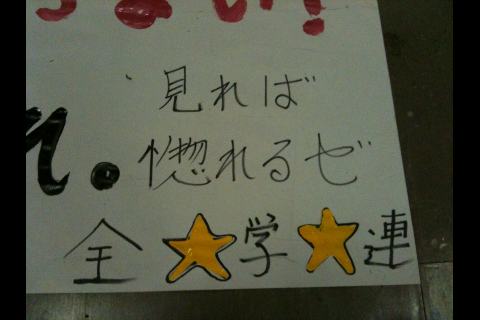 い!
n.
見れば
惚れるゼ
全★学★連